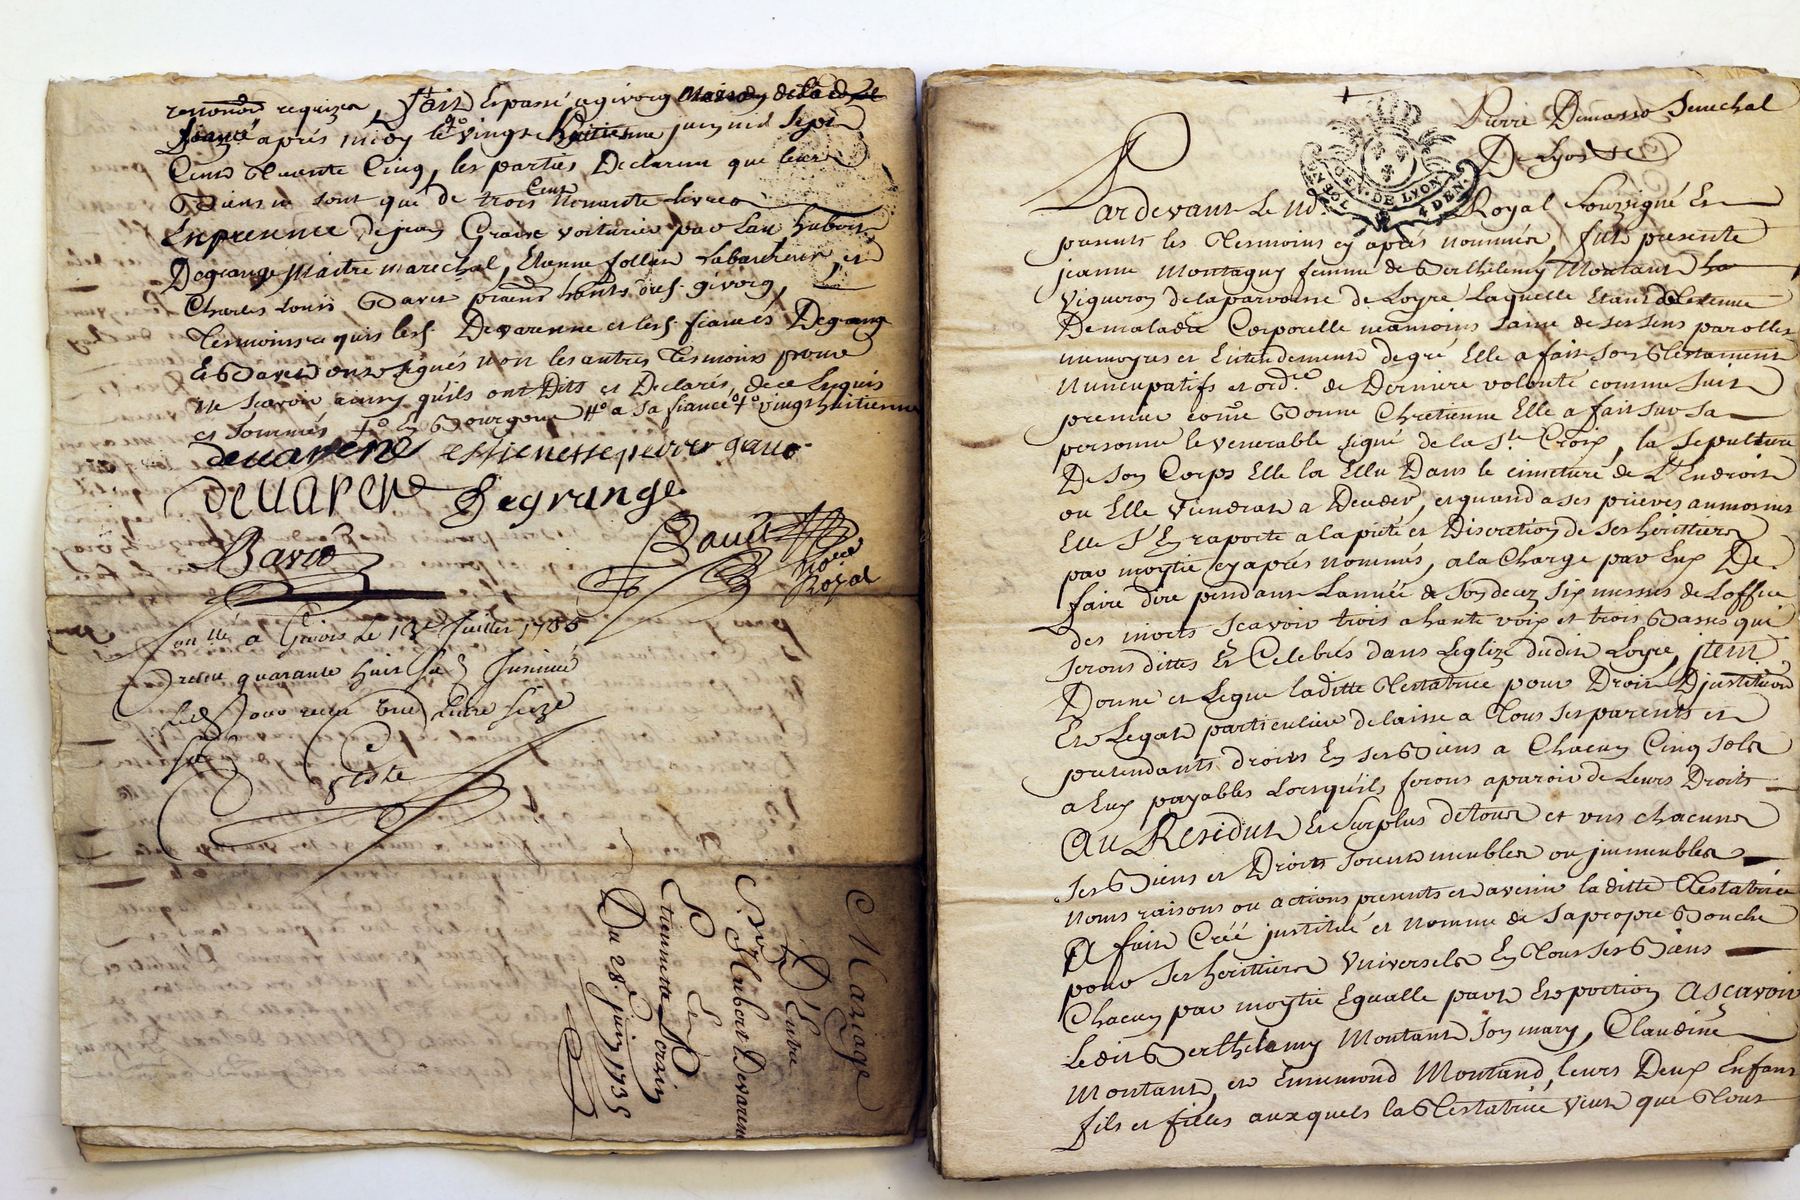 requizes, fait Et passé a givors
après midy le vingt huitieme jour
Cent trente Cinq, les parties Declarant que leurs
Biens ne sont que de trois Cent nonante Livres
En presence de jean voiturier par Eau hubert
Degrange Maitre marechal, Etienne follier Laboureur, et
Charles Louis Bavet givors,
Tesmoins requis Devarenne et Degrange
Et Bavet ont signés non les autres Tesmoins pour
ne Scavoir ainsy qu'ils ont Dits et Declarés, de ce Enquis
et sommés vingt huitieme
devarene
devarene Degrange
Bavet Bavet
Nore
Royal
a Givors Le 12e Juillet 1735
receu quarante huit
Livre seize
Coste
Mariage
D'Entre
Hubert Devarenne
Et
Etiennette Perrin
Du 28e Juin 1735
Pierre Demasso Senechal
De Lyon
GEN. DE LYON
4 DEN.
Pardevant Le No Royal Soussigné Et
presents les Tesmoins cy aprés nommés, fut presente
jeanne Montagny femme de Berthelemy Montant
Vigneron de la parroisse de Loyre Laquelle Etant detenue
De maladie Corporelle neamoins saine de ses sens parolles
memoyres et Entendement de gré Elle a fait son Testament
Nuncupatifs et ordce de Derniere volonté comme suit
premiere come Bonne Chretienne Elle a fait sur sa
personne le venerable signe de la Ste Croix, la sepulture
De son Corps Elle la Ellu Dans le cimetiere de L'Endroit
ou Elle viendrat a Deceder, et quand a ses prieres aumosnes
Elle S'En raporte a la pieté et Discretion de ses heritiers
par moytié cy aprés nommés, a la Charge par Eux De
faire dire pendant Lannée de son decez six messes de Loffice
des morts scavoir trois a haute voix et trois Basses qui
seronts dittes Et Celebrés dans Leglize dudit Loyre, jtem
Donne et Legue laditte Testatrice pour Droit Djnstitution
Et Legat particulier delaisse a Tous ses parents et
pretendants droits En ses Biens a Chacun Cinq sols
a Eux payables Lorsquils feront aparoir de Leurs Droits
Au Residut Et surplus de tous et uns chacuns
ses Biens et Droits soient meubles ou jmmeubles
noms raisons ou actions presents et avenir laditte Testatrice
A fait Créé jnstitué et nommé de sa propre Bouche
pour ses heritiers Vniversels En Tous ses Biens
Chacun par moytié Egualle part Et portion Ascavoir
Ledit Berthelemy Montant son mary, Claudine
Montant, et Ennemond Montand, leurs Deux Enfants
fils et filles auxquels la Testatrice veut que Tout